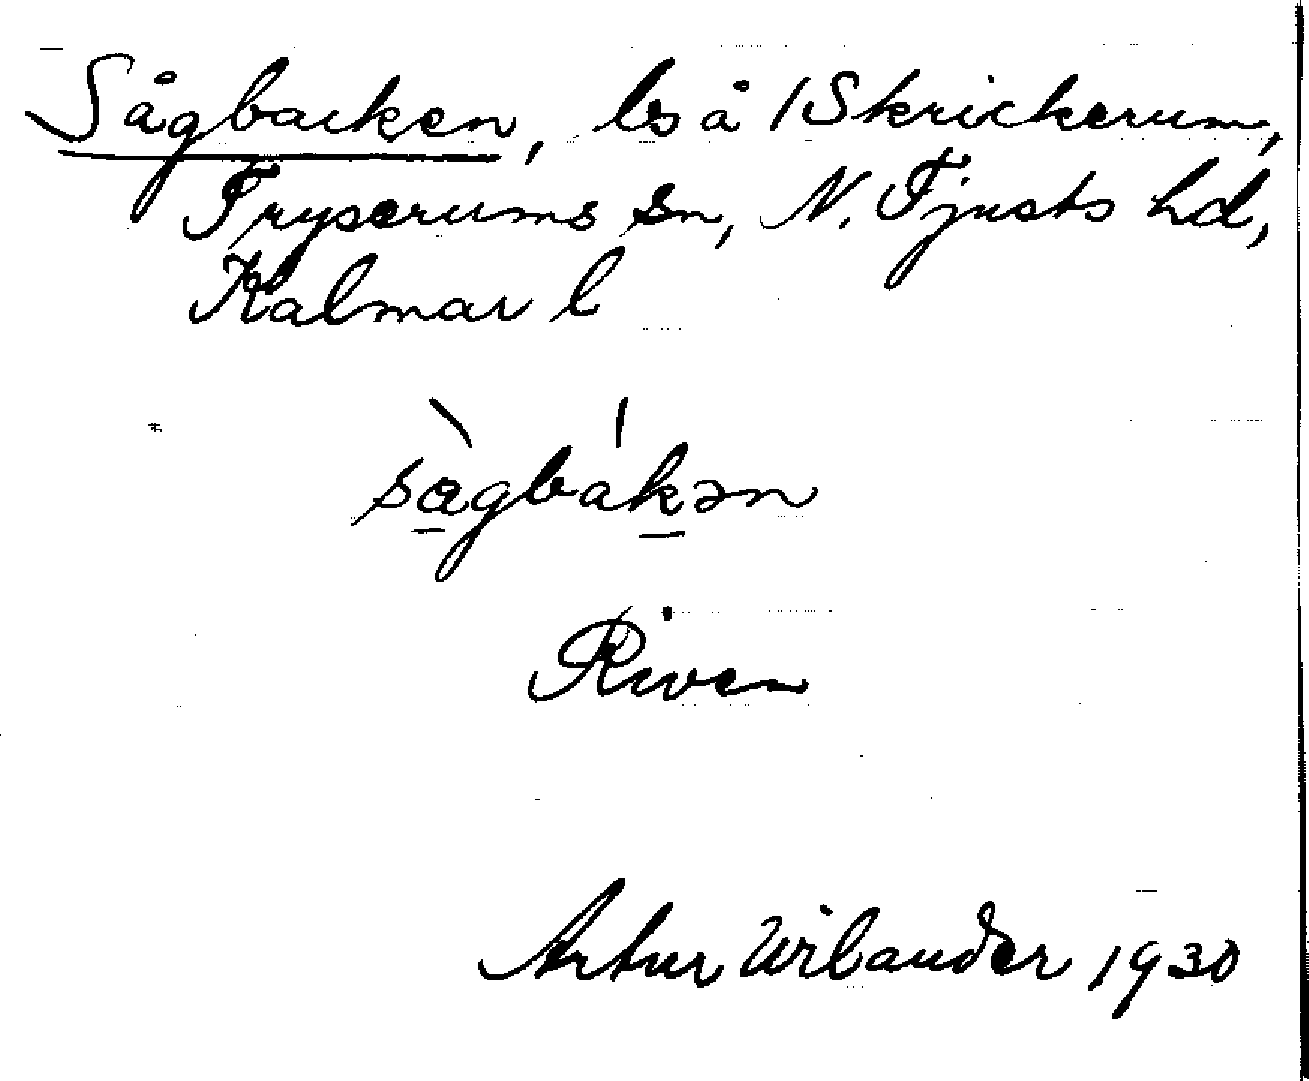 Sågbacken, ls å 1 Skrickerum,
Fryserums sn, N. Tjusts hd,
Kalmar l
sàgbákən
Riven
Artur Wilander 1930